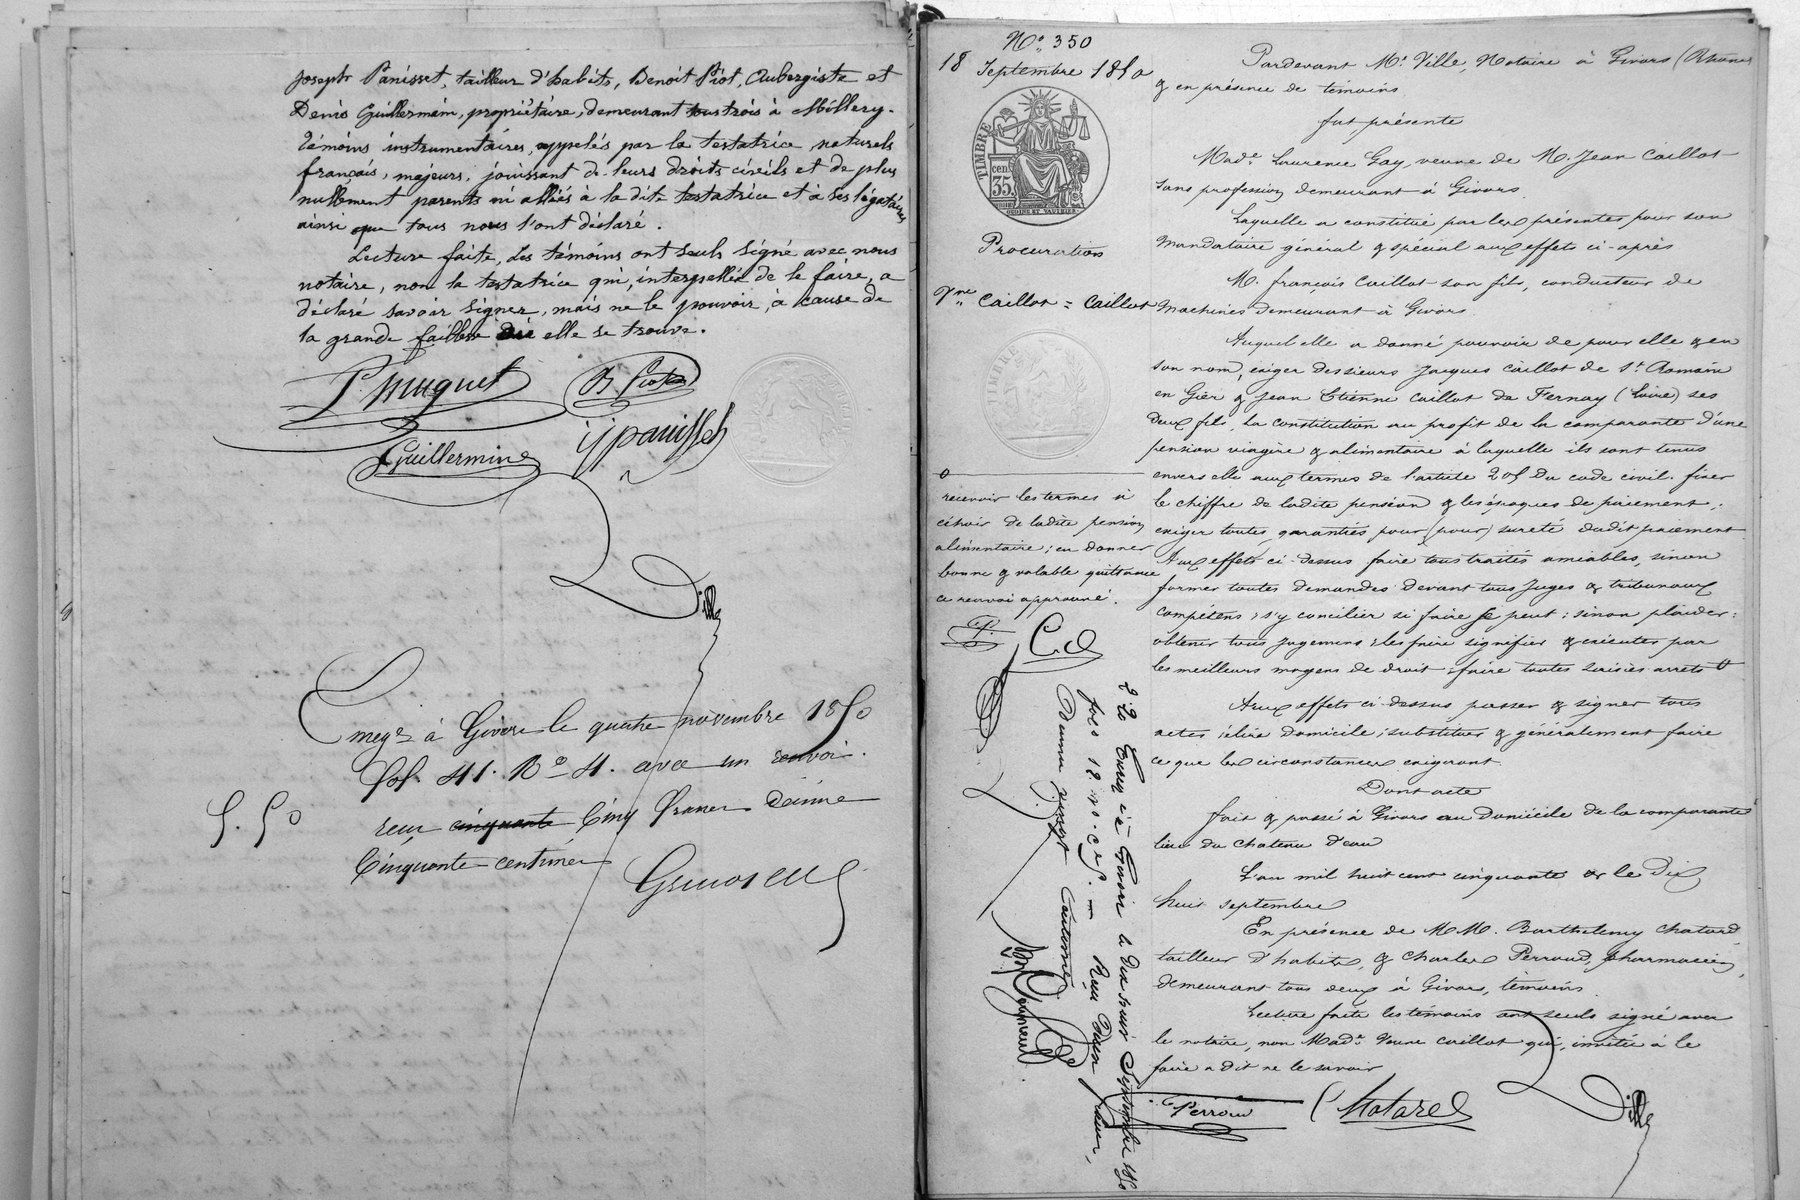 Joseph Panisset, tailleur d'habits, Benoit Piot, Aubergiste et
Denis Guillermain, propriétaire, demeurant tous trois à Millery.
Témoins instrumentaires, appelés par la testatrice, naturels
français, majeurs, jouissant de leurs droits civils et de plus
nullement parents ni alliés à la dite testatrice et à ses légataires
ainsi que tous nous l'ont déclaré.
Lecture faite, Les témoins ont seuls signé avec nous
notaire, non la testatrice qui, interpellée de le faire, a
déclaré savoir signer, mais ne le pouvoir, à cause de
la grande faiblesse où elle se trouve.
P. Muguet
B. Piot
Guillermin
j panisset
Ville
Enregé à Givors le quatre novembre 1850
fol. 41. Ro 4. avec un renvoi.
5. 50
reçu cinquante Cinq francs décime
Cinquante centimes
No. 350
18 Septembre 1850
TIMBRE
cen. 35
Procuration
Vme Caillot = Caillot
TIMBRE
recevoir les termes à
échoir de ladite pension
alimentaire; en donner
bonne & valable quittance
ce renvoi approuvé.
Pardevant Me. Ville, Notaire à Givors (Rhône)
& en présence de témoins
fut présente
Made Laurence Gay, veuve de M. Jean Caillot
sans profession, demeurant à Givors
Laquelle a constitué par les présentes pour son
mandataire général & spécial aux effets ci-après
M. françois Caillot son fils, conducteur de
machines demeurant à Givors
Auquel elle a donné pouvoir de pour elle & en
son nom, exiger des sieurs Jacques Caillot de St. Romain
en Gier & Jean Etienne Caillot de Fernay (Loire) ses
deux fils, la constitution au profit de la comparante d'une
pension viagère & alimentaire à laquelle ils sont tenus
envers elle aux termes de l'article 205 du code civil. fixer
le chiffre de ladite pension & les époques de paiement;
exiger toutes garanties pour (pour) sureté dudit paiement
Aux effets ci-dessus faire tous traités amiables, sinon
former toutes demandes devant tous Juges & tribunaux
compétens; s'y concilier si faire se peut; sinon plaider:
obtenir tous jugemens; les faire signifier & exécuter par
les meilleurs moyens de droit; faire toutes saisies arrets
Aux effets ci-dessus passer & signer tous
actes; élire domicile; substituer & généralement faire
ce que les circonstances exigeront.
Dont acte
fait & passé à Givors au Domicile de la comparante
lieu du chateau d'eau
L'an mil huit cent cinquante & le Dix
huit septembre
En présence de MM. Barthelemy Chatard
tailleur d'habits, & Charles Perroud, pharmacien,
demeurant tous deux à Givors, témoins
Lecture faite les témoins ont seuls signé avec
le notaire, non Made. Veuve Caillot qui, invitée à le
faire a dit ne le savoir
Chatard
Ville
Givors le dix huit Septembre 1850
fol. 12
Reçu Deux francs,
vingt Centimes